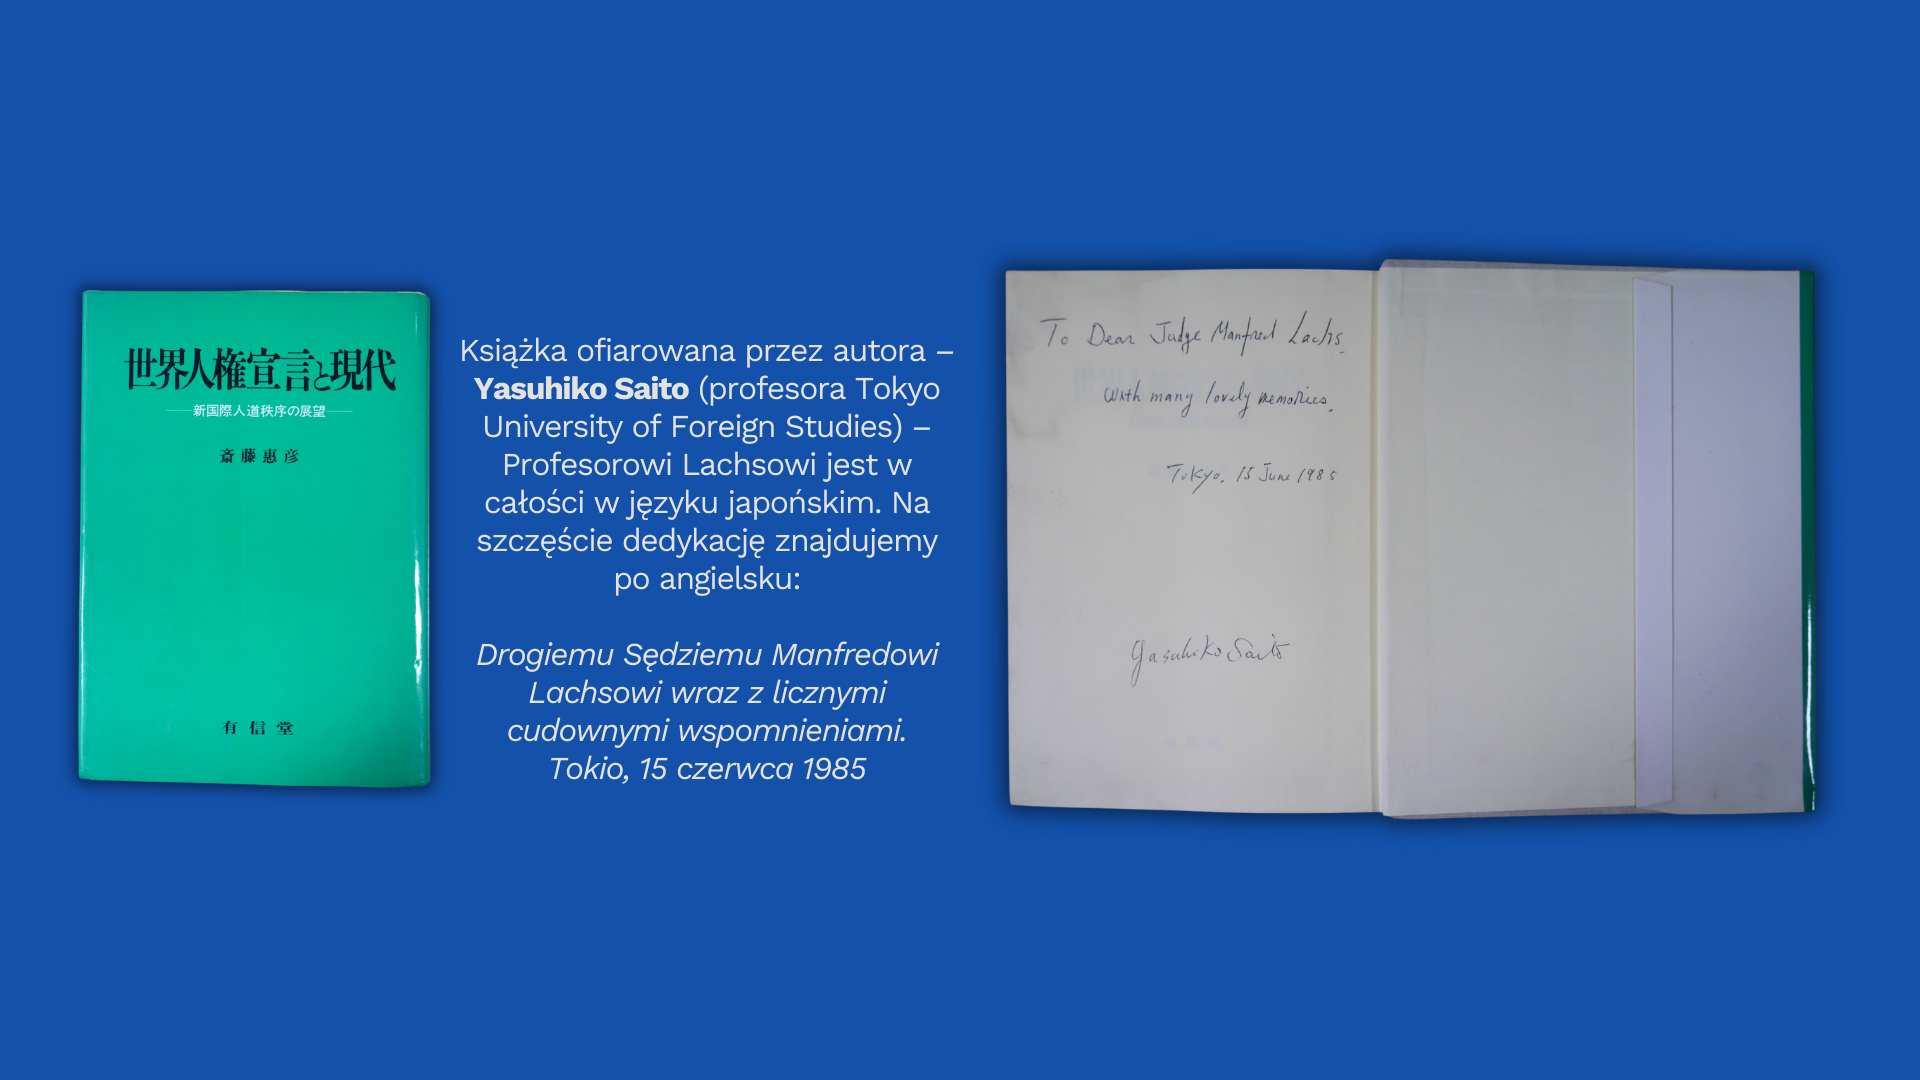 世界人権宣言と現代
新国際人道秩序の展望
斎藤惠彦
有信堂
Książka ofiarowana przez autora –
Yasuhiko Saito (profesora Tokyo
University of Foreign Studies) –
Profesorowi Lachsowi jest w
całości w języku japońskim. Na
szczęście dedykację znajdujemy
po angielsku:
Drogiemu Sędziemu Manfredowi
Lachsowi wraz z licznymi
cudownymi wspomnieniami.
Tokio, 15 czerwca 1985
To Dear Judge Manfred Lachs,
With many lovely memories,
Tokyo, 15 June 1985
Yasuhiko Saito